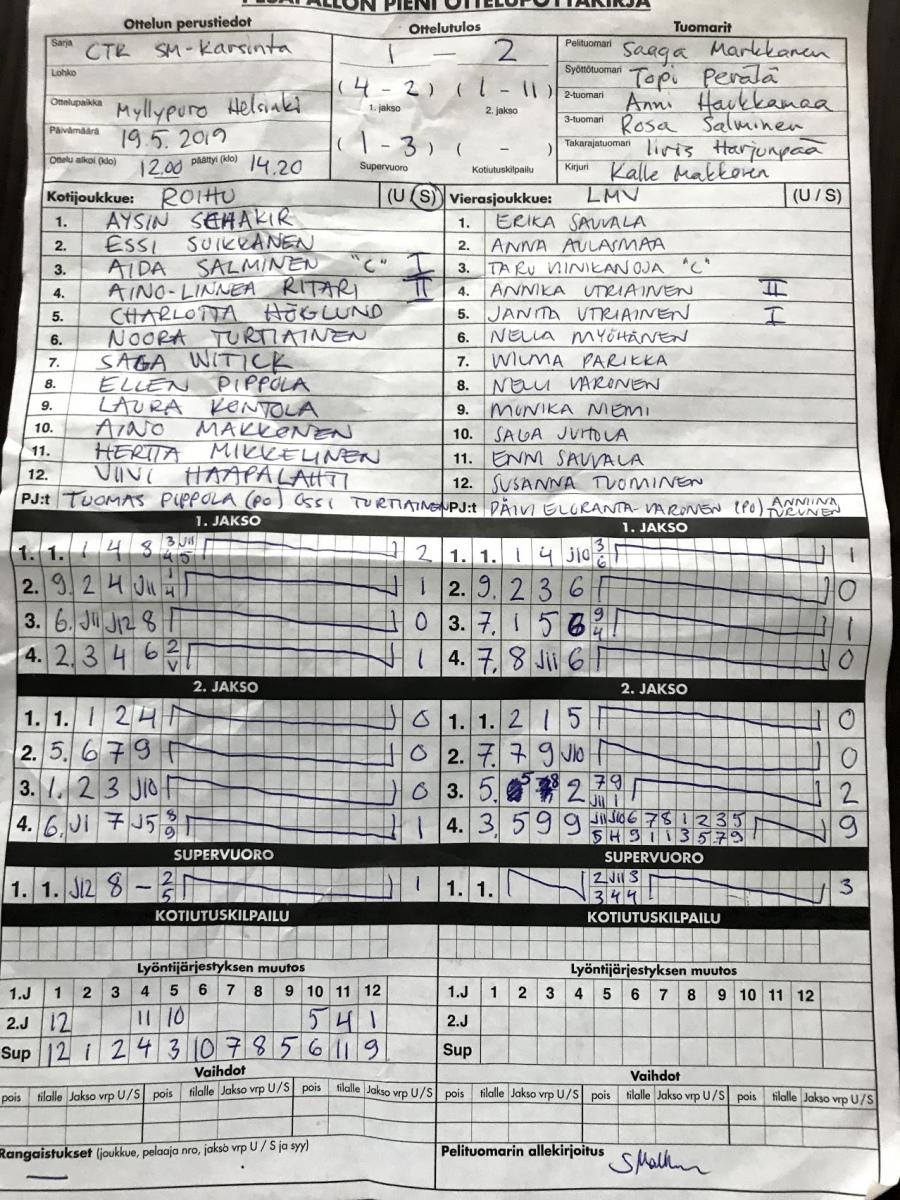 PESÄPALLON PIENI OTTELUPÖYTÄKIRJA
Ottelun perustiedot
Sarja CTR SM-karsinta
Lohko
Ottelupaikka Myllypuro Helsinki
Päivämäärä 19.5.2019
Ottelu alkoi (klo) 12.00 päättyi (klo) 14.20
Ottelutulos
1 - 2
(4 - 2) (1 - 11)
1. jakso 2. jakso
(1 - 3) ( - )
Supervuoro Kotiutuskilpailu
Tuomarit
Pelituomari Saaga Markkanen
Syöttötuomari Topi Perälä
2-tuomari Anni Haukkamaa
3-tuomari Rosa Salminen
Takarajatuomari Iiris Harjunpää
Kirjuri Kalle Makkonen
Kotijoukkue: ROIHU (U/S)
1. AYSIN SCHAKIR
2. ESSI SUIKKANEN
3. AIDA SALMINEN "C" I
4. AINO-LINNEA RITARI II
5. CHARLOTTA HÖGLUND
6. NOORA TURTIAINEN
7. SAGA WITICK
8. ELLEN PIPPOLA
9. LAURA KONTOLA
10. AINO MAKKONEN
11. HERTTA MIKKELINEN
12. VIIVI HAAPALAHTI
PJ:t TUOMAS PIPPOLA (PO) OSSI TURTIAINEN
Vierasjoukkue: LMV (U/S)
1. ERIKA SAUVALA
2. ANNA AULASMAA
3. TARU NINIKANOJA "C"
4. ANNIKA UTRIAINEN II
5. JANITA UTRIAINEN I
6. NELLA MYÖHÄNEN
7. WILMA PARIKKA
8. NELLI VARONEN
9. MONIKA NIEMI
10. SAGA JUHOLA
11. ENNI SAUVALA
12. SUSANNA TUOMINEN
PJ:t PÄIVI ELORANTA-VARONEN (PO) ANNIINA TURUNEN
1. JAKSO
1. 1. 1 4 8 3 J11 4 5 2
2. 9. 2 4 J11 1 4 1
3. 6. J11 J12 8 0
4. 2. 3 4 6 2 V 1
2. JAKSO
1. 1. 1 2 4 0
2. 5. 6 7 9 0
3. 1. 2 3 J10 0
4. 6. J1 7 J5 8 9 1
SUPERVUORO
1. 1. J12 8 - 2 5 1
KOTIUTUSKILPAILU
1. JAKSO
1. 1. 1 4 J10 3 6 1
2. 9. 2 3 6 0
3. 7. 1 5 6 9 4 1
4. 7. 8 J11 6 0
2. JAKSO
1. 1. 2 1 5 0
2. 7. 7 9 J10 0
3. 5. 5 8 2 7 9 J11 1 2
4. 3. 5 9 9 J11 J10 6 7 8 1 2 3 5 9
5 4 9 1 1 3 5 7 9
SUPERVUORO
1. 1. 2 J11 3 3
3 4 4
KOTIUTUSKILPAILU
Lyöntijärjestyksen muutos
1.J 1 2 3 4 5 6 7 8 9 10 11 12
2.J 12 11 10 5 4 1
Sup 12 1 2 4 3 10 7 8 5 6 11 9
Vaihdot
pois tilalle Jakso vrp U/S pois tilalle Jakso vrp U/S pois tilalle Jakso vrp U/S
Rangaistukset (joukkue, pelaaja nro, jakso vrp U / S ja syy)
Lyöntijärjestyksen muutos
1.J 1 2 3 4 5 6 7 8 9 10 11 12
2.J
Sup
Vaihdot
pois tilalle Jakso vrp U/S pois tilalle Jakso vrp U/S pois tilalle Jakso vrp U/S
Pelituomarin allekirjoitus